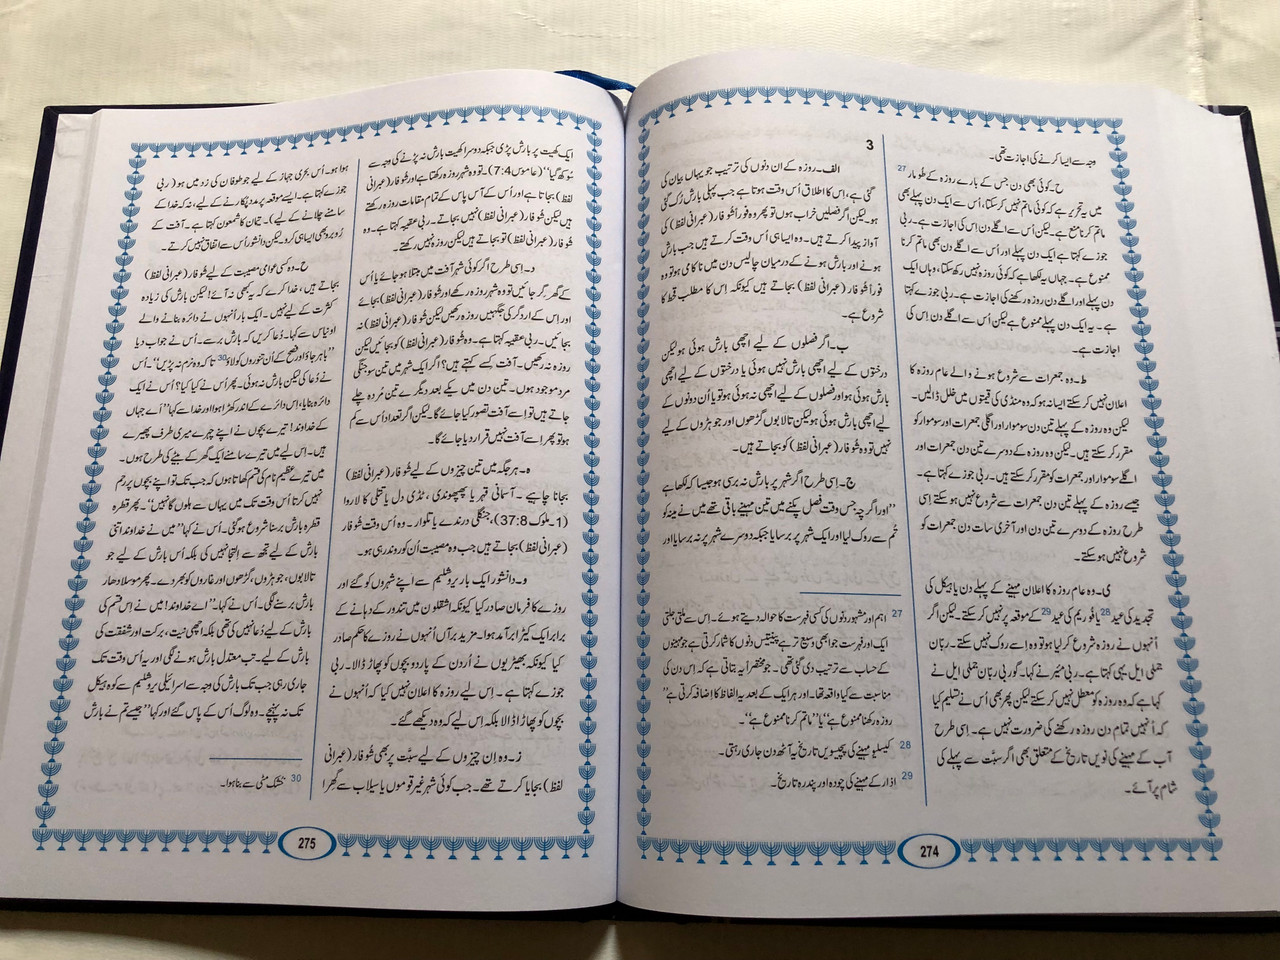 وجہ سے ایسا کرنے کی اجازت تھی۔
ح۔ کوئی بھی دن جس کے بارے روزہ کے طومار 27
میں یہ تحریر ہے کہ کوئی ماتم نہیں کر سکتا، اُس سے ایک دن پہلے بھی
ماتم کرنا منع ہے۔ لیکن اُس سے اگلے دن اِس کی اجازت ہے۔ ربی
جوزے کہتا ہے ایک دن پہلے اور اُس سے اگلے دن بھی ماتم کرنا
ممنوع ہے۔ جہاں یہ لکھا ہے کہ کوئی روزہ نہیں رکھ سکتا، وہاں ایک
دن پہلے اور اگلے دن روزہ رکھنے کی اجازت ہے۔ ربی جوزے کہتا
ہے۔ یہ ایک دن پہلے ممنوع ہے لیکن اُس سے اگلے دن اِس کی
اجازت ہے۔
ط۔ وہ جمعرات سے شروع ہونے والے عام روزہ کا
اعلان نہیں کر سکتے ایسا نہ ہو کہ وہ منڈی کی قیمتوں میں خلل ڈالیں۔
لیکن وہ روزہ کے پہلے تین دن سوموار اور اگلی جمعرات اور سوموار کو
مقرر کر سکتے ہیں۔ لیکن وہ روزہ کے دوسرے تین دن جمعرات اور
اگلے سوموار اور جمعرات کو مقرر کر سکتے ہیں۔ ربی جوزے کہتا ہے۔
جیسے روزہ کے پہلے تین دن جمعرات سے شروع نہیں ہو سکتے اِسی
طرح روزہ کے دوسرے تین دن اور آخری سات دن جمعرات کو
شروع نہیں ہو سکتے۔
ی۔ وہ عام روزہ کا اعلان مہینے کے پہلے دن یا ہیکل کی
تجدید کی عید 28 یا فوریم کی عید 29 کے موقعہ پر نہیں کر سکتے۔ لیکن اگر
اُنہوں نے روزہ شروع کر لیا ہو تو وہ اِسے روک نہیں سکتے۔ ربان
جملی ایل یہی کہتا ہے۔ ربی مئیر نے کہا۔ گو ربی ربان جملی ایل نے
کہا ہے کہ وہ روزہ کو معطل نہیں کر سکتے لیکن پھر بھی اُس نے تسلیم کیا
کہ اُنہیں تمام دن روزہ رکھنے کی ضرورت نہیں ہے۔ اِسی طرح
آب کے مہینے کی نویں تاریخ کے متعلق بھی اگر سبّت سے پہلے کی
شام پر آئے۔
3
الف۔ روزہ کے ان دنوں کی ترتیب جو یہاں بیان کی
گئی ہے، اس کا اطلاق اُس وقت ہوتا ہے جب پہلی بارش رُک گئی
ہو۔ لیکن اگر فصلیں خراب ہوں تو پھر وہ فوراً شوفار (عبرانی لفظ) کی
آواز پیدا کرتے ہیں۔ وہ ایسا ہی اُس وقت کرتے ہیں جب بارش
ہونے اور بارش ہونے کے درمیان چالیس دن میں ناکامی ہو تو وہ
فوراً شوفار (عبرانی لفظ) بجاتے ہیں کیونکہ اِس کا مطلب قحط کا
شروع ہے۔
ب۔ اگر فصلوں کے لیے اچھی بارش ہوئی ہو لیکن
درختوں کے لیے اچھی بارش نہیں ہوئی یا درختوں کے لیے اچھی
بارش ہوئی ہو اور فصلوں کے لیے اچھی نہ ہوئی ہو تو یا اُن دونوں کے
لیے اچھی بارش ہوئی ہو لیکن تالابوں گڑھوں اور جوہڑوں کے لیے
نہیں تو وہ شوفار (عبرانی لفظ) کو بجاتے ہیں۔
ج۔ اِسی طرح اگر شہر پر بارش نہ برسی ہو جیسا کہ لکھا ہے
"اور اگرچہ جس وقت فصل پکنے میں تین مہینے باقی تھے میں نے مینہ کو
تُم سے روک لیا اور ایک شہر پر برسایا جبکہ دوسرے شہر پر نہ برسایا اور
27 اہم اور مشہور دنوں کی کسی فہرست کا حوالہ دیتے ہوئے۔ اس سے ملتی جلتی
ایک اور فہرست جو ابھی وسیع تر ہے پینتیس دنوں کا شمار کرتی ہے جو مہینوں
کے حساب سے ترتیب دی گئی تھی۔ جو مختصراً یہ بتاتی ہے کہ اس دن کی
مناسبت سے کیا واقعہ تھا۔ اور ہر ایک کے بعد یہ الفاظ کا اضافہ کرتی ہے "
روزہ رکھنا ممنوع ہے" یا "ماتم کرنا ممنوع ہے"۔
28 کیسلو مہینے کی پچیسویں تاریخ یہ آٹھ دن جاری رہتی۔
29 اذار کے مہینے کی چودہ اور پندرہ تاریخ۔
274
ایک کھیت پر بارش پڑی جبکہ دوسرا کھیت بارش نہ پڑنے کی وجہ سے
سُوکھ گیا" (عاموس 7:4)۔ تو وہ شہر روزہ رکھتا ہے اور شوفار (عبرانی
لفظ) بجاتا ہے اور اُس کے آس پاس کے تمام مقامات روزہ رکھتے
ہیں لیکن شوفار (عبرانی لفظ) نہیں بجاتے۔ ربی عقیبہ کہتا ہے۔ وہ
شوفار (عبرانی لفظ) تو بجاتے ہیں لیکن روزہ نہیں رکھتے۔
د۔ اِسی طرح اگر کوئی شہر آفت میں مبتلا ہو جائے یا اُس
کے گھر گر جائیں تو وہ شہر روزہ رکھے اور شوفار (عبرانی لفظ) بجائے
اور اِس کے ارد گرد کی جگہیں روزہ رکھیں لیکن شوفار (عبرانی لفظ) نہ
بجائیں۔ ربی عقیبہ کہتا ہے۔ وہ شوفار (عبرانی لفظ) کو بجائیں لیکن
روزہ نہ رکھیں۔ آفت کسے کہتے ہیں؟ اگر ایک شہر میں تین سو جنگی
مرد موجود ہوں۔ تین دن میں یکے بعد دیگرے تین مُردہ چلے
جاتے ہیں تو اِسے آفت تصور کیا جائے گا۔ لیکن اگر تعداد اُس سے کم
ہو تو پھر اِسے آفت نہیں قرار دیا جائے گا۔
ہ۔ ہر جگہ میں تین چیزوں کے لیے شوفار (عبرانی لفظ)
بجانا چاہیے۔ آسمانی قہر یا پھپھوندی، ٹڈی دل یا تتلی کا لاروا
(1۔ملوک 37:8)، جنگلی درندے یا تلوار۔ وہ اُس وقت شوفار
(عبرانی لفظ) بجاتے ہیں جب وہ مصیبت اُن کو روند رہی ہو۔
و۔ دانشور ایک بار یروشلیم سے اپنے شہروں کو گئے اور
روزے کا فرمان صادر کیا کیونکہ اشقلون میں تندور کے دہانے کے
برابر ایک کیڑا برآمد ہوا۔ مزید برآں اُنہوں نے روزے کا حکم صادر
کیا کیونکہ بھیڑیوں نے اُردن کے پار دو بچوں کو پھاڑ ڈالا۔ ربی
جوزے کہتا ہے۔ اِس لیے روزہ کا اعلان نہیں کیا کہ اُنہوں نے
بچوں کو پھاڑا ڈالا بلکہ اِس لیے کہ وہ دیکھے گئے۔
ز۔ وہ اِن چیزوں کے لیے سبّت پر بھی شوفار (عبرانی
لفظ) بجایا کرتے تھے۔ جب کوئی شہر غیر قوموں یا سیلاب سے گھرا
ہوا ہو۔ اُس بحری جہاز کے لیے جو طوفان کی زد میں ہو (ربی
جوزے کہتا ہے۔ ایسے موقعہ پر مدد پکارنے کے لیے، نہ کہ خدا کے
سامنے چلانے کے لیے)۔ تیمان کا شمعون کہتا ہے۔ آفت کے
رُوبرو بھی ایسا ہی کرو۔ لیکن دانشور اُس سے اتفاق نہیں کرتے۔
ح۔ وہ کسی عوامی مصیبت کے لیے شوفار (عبرانی لفظ)
بجاتے ہیں، خدا کرے کہ یہ کبھی نہ آئے! لیکن بارش کی زیادہ
کثرت کے لیے نہیں۔ ایک بار اُنہوں نے دائرہ بنانے والے
اونیاس سے کہا۔ دُعا کریں کہ بارش برسے۔ اُس نے جواب دیا
"باہر جاؤ اور فصح کے اُن تنوروں کو لاؤ 30 تاکہ وہ نرم نہ پڑیں"۔ اُس
نے دُعا کی لیکن بارش نہ ہوئی۔ پھر اُس نے کیا کیا؟ اُس نے ایک
دائرہ بنایا، اِس دائرے کے اندر کھڑا ہوا اور خدا سے کہا "اَے جہاں
کے خداوند! تیرے بچوں نے اپنے چہرے میری طرف پھیرے
ہیں۔ اِس لیے میں تیرے سامنے ایک گھر کے بیٹے کی طرح ہوں۔
میں تیرے عظیم نام کی قسم کھاتا ہوں کہ جب تک تو اپنے بچوں پر رحم
نہیں کرتا اُس وقت تک میں یہاں سے ہلوں گا نہیں"۔ پھر قطرہ
قطرہ بارش برسنا شروع ہو گئی۔ اُس نے کہا "میں نے خداوند اتنی
بارش کے لیے تجھ سے التجا نہیں کی بلکہ اُس بارش کے لیے جو
تالابوں، جوہڑوں، گڑھوں اور غاروں کو بھر دے۔ پھر موسلا دھار
بارش برسنے لگی۔ اُس نے کہا۔ "اے خداوند! میں نے اِس قسم کی
بارش کے لیے دُعا نہیں کی تھی بلکہ اچھی نیت، برکت اور شفقت کی
بارش کے لیے۔ تب معتدل بارش ہونے لگی اور یہ اُس وقت تک
جاری رہی جب تک بارش کی وجہ سے اسرائیلی یروشلیم سے کوہ ہیکل
تک نہ پہنچے۔ وہ لوگ اُس کے پاس گئے اور کہا "جیسے تم نے بارش
30 خشک مٹی سے بنا ہوا۔
275